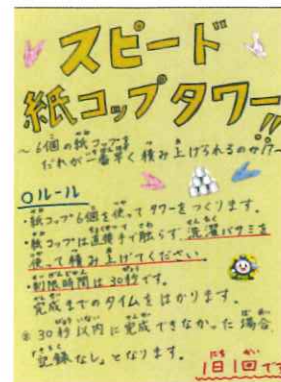 スピード
紙コップタワー!!
〜6個の紙コップを
だれが一番早く積み上げられるのか!?〜
○ルール
・紙コップ6個を使ってタワーをつくります。
・紙コップは直接手で触らず、洗濯バサミを
使って積み上げてください。
・制限時間は30秒です。
完成までのタイムをはかります。
※30秒以内に完成できなかった場合、
「記録なし」となります。
1日1回です